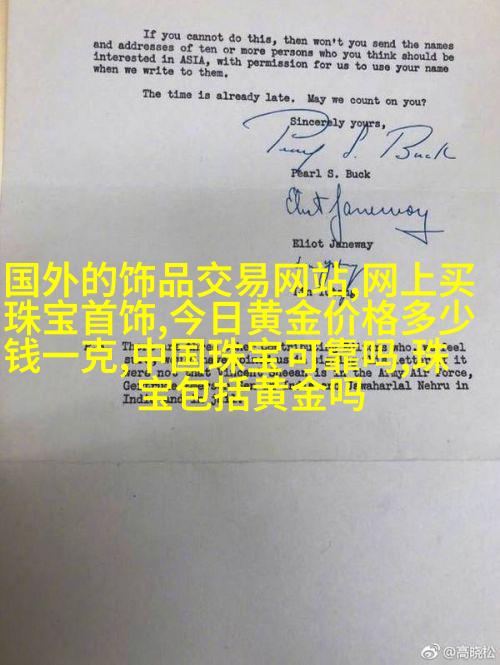 If you cannot do this, then won't you send the names
and addresses of ten or more persons who you think should be
interested in ASIA, with permission for us to use your name
when we write to them.
The time is already late. May we count on you?
Sincerely yours,
Pearl S. Buck
Pearl S. Buck
Eliot Janeway
Eliot Janeway
国外的饰品交易网站,网上买
珠宝首饰,今日黄金价格多少
钱一克,中国珠宝可靠吗,珠
宝包括黄金吗
in the Army Air Force,
Jawaharlal Nehru in
@高晓松